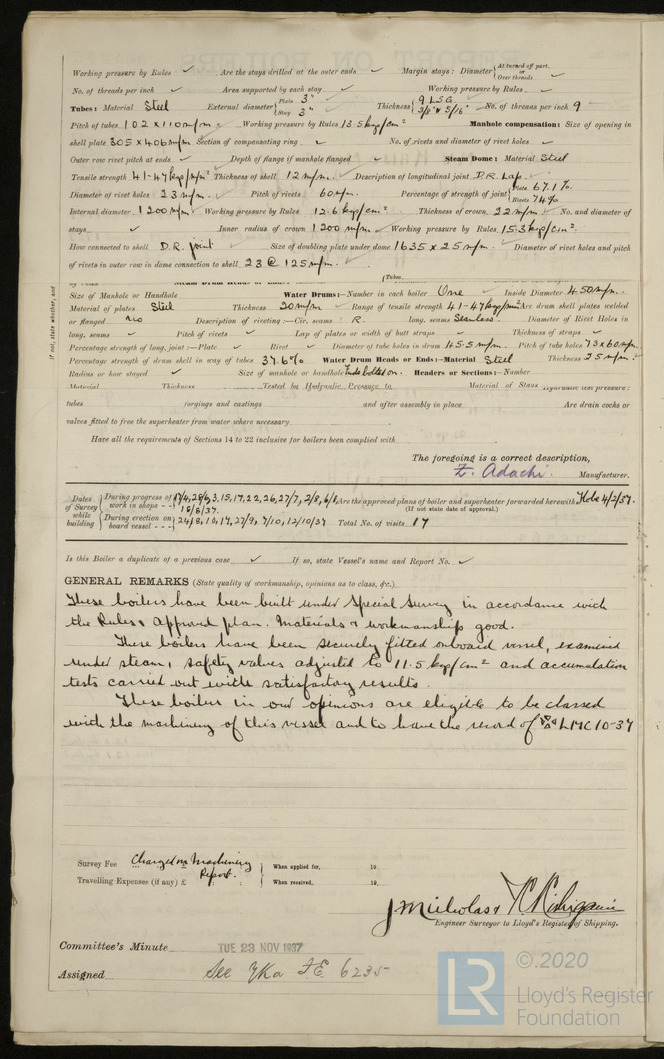 Working pressure by Rules ✓ Are the stays drilled at the outer ends ✓ Margin stays: Diameter { At turned off part. or Over threads ✓
No. of threads per inch ✓ Area supported by each stay ✓ Working pressure by Rules ✓
Tubes: Material Steel External diameter { Plain 3" Stay 3" Thickness { 9 LSG 3/8" & 5/16" No. of threads per inch 9
Pitch of tubes 102 x 110 m/m Working pressure by Rules 13.5 kgs/cm² Manhole compensation: Size of opening in
shell plate 305 x 406 m/m Section of compensating ring ✓ No. of rivets and diameter of rivet holes ✓
Outer row rivet pitch at ends ✓ Depth of flange if manhole flanged ✓ Steam Dome: Material Steel
Tensile strength 41-47 kgs/m/m² Thickness of shell 12 m/m. Description of longitudinal joint D.R. Lap.
Diameter of rivet holes 23 m/m Pitch of rivets 60 m/m. Percentage of strength of joint { Plate 67.1% Rivets 74%
Internal diameter 1200 m/m Working pressure by Rules 12.6 kg/cm² Thickness of crown 22 m/m No. and diameter of
stays ✓ Inner radius of crown 1200 m/m Working pressure by Rules 15.3 kgs/cm².
How connected to shell D.R. joint Size of doubling plate under dome 1635 x 25 m/m. Diameter of rivet holes and pitch
of rivets in outer row in dome connection to shell 23 @ 125 m/m.
If not, state whether, and
{ Tubes
Size of Manhole or Handhole Water Drums:—Number in each boiler One Inside Diameter 450 m/m.
Material of plates Steel Thickness 20 m/m Range of tensile strength 41-47 kgs/m/m² Are drum shell plates welded
or flanged No Description of riveting:—Cir. seams R. long. seams Seamless. Diameter of Rivet Holes in
long. seams ✓ Pitch of rivets ✓ Lap of plates or width of butt straps ✓ Thickness of straps ✓
Percentage strength of long. joint:—Plate ✓ Rivet ✓ Diameter of tube holes in drum 45.5 m/m. Pitch of tube holes 73 x 60 m/m.
Percentage strength of drum shell in way of tubes 37.6% Water Drum Heads or Ends:—Material Steel Thickness 25 m/m.
Radius or how stayed ✓ Size of manhole or handhole Ends bolted on. Headers or Sections:—Number
Material Thickness Tested by Hydraulic Pressure to Material of Stays Hydraulic test pressure:
tubes forgings and castings and after assembly in place Are drain cocks or
valves fitted to free the superheater from water where necessary
Have all the requirements of Sections 14 to 22 inclusive for boilers been complied with
The foregoing is a correct description,
Adachi. Manufacturer.
Dates of Survey while building { During progress of work in shops - - 17/4, 28/6, 3, 15, 17, 22, 26, 27/7, 2/8, 6/8, 18/8/37. Are the approved plans of boiler and superheater forwarded herewith Kobe 4/2/37.
(If not state date of approval.)
During erection on board vessel - - - 24/8, 10, 17, 27/9, 7/10, 12/10/37 Total No. of visits 17
Is this Boiler a duplicate of a previous case ✓ If so, state Vessel's name and Report No. ✓
GENERAL REMARKS (State quality of workmanship, opinions as to class, &c.)
These boilers have been built under Special Survey in accordance with
the Rules & Approved plan. Materials & workmanship good.
These boilers have been securely fitted onboard vessel, examined
under steam, safety valves adjusted to 11.5 kgs/cm² and accumulation
tests carried out with satisfactory results.
These boilers in our opinions are eligible to be classed
with the machinery of this vessel and to have the record of LMC 10-37
Survey Fee Charged on Machinery Report. When applied for, 19
Travelling Expenses (if any) £ : : When received, 19
J Nicholas &
Engineer Surveyor to Lloyd's Register of Shipping.
Committee's Minute TUE 23 NOV 1937
Assigned See Yka FE 6235
LR ©.2020
Lloyd's Register
Foundation